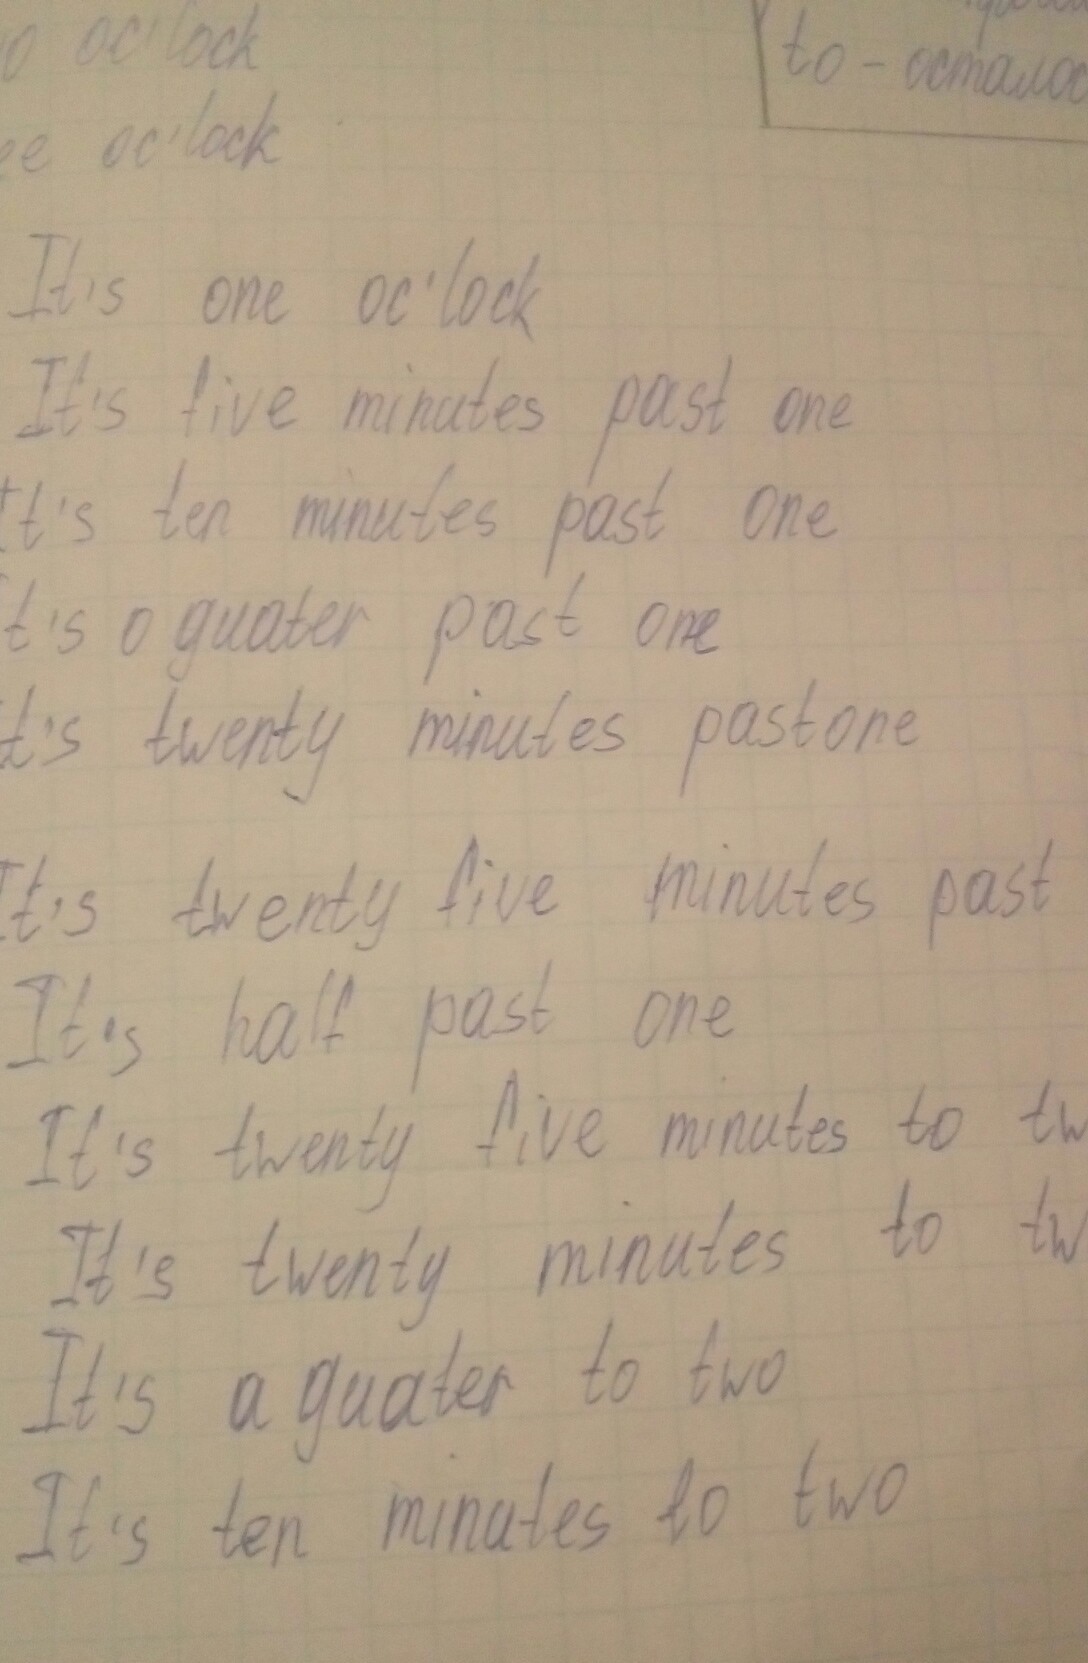 oc'lock
to - осталос
oc'lock
It's one oc'lock
It's five minutes past one
It's ten minutes past one
It's a quater past one
It's twenty minutes past one
It's twenty five minutes past
It's half past one
It's twenty five minutes to tw
It's twenty minutes to tw
It's a quater to two
It's ten minutes to two